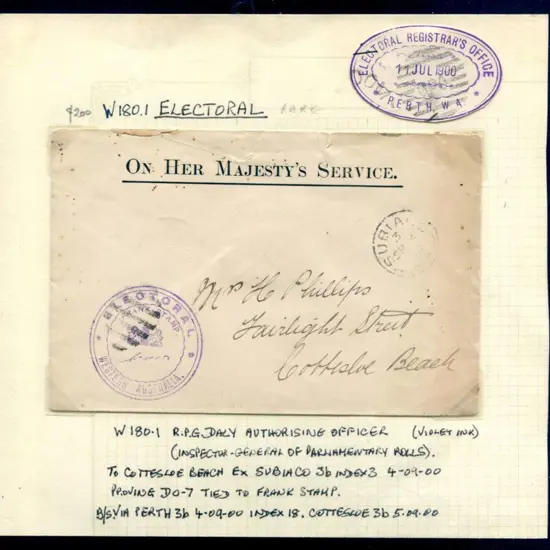 ELECTORAL REGISTRAR'S OFFICE
11 JUL 1900
PERTH, W.A.
$200 W180.1 ELECTORAL RARE
ON HER MAJESTY'S SERVICE.
SUBIA
3
ELECTORAL
FRANK STAMP
WESTERN AUSTRALIA.
Mrs H Phillips
Fairlight Street
Cottesloe Beach
W180.1 R.P.G. DALY AUTHORISING OFFICER (VIOLET INK)
(INSPECTOR-GENERAL OF PARLIAMENTARY ROLLS).
TO COTTESLOE BEACH EX SUBIACO 3b INDEX 3 4-09-00
PROVING DO-7 TIED TO FRANK STAMP.
B/S VIA PERTH 3b 4-09-00 INDEX 18. COTTESLOE 3b 5.09.00